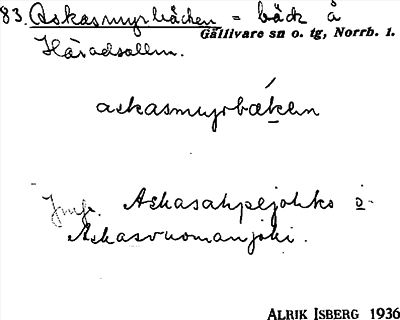 83. Askasmyrbäcken = bäck å
Gällivare sn o. tg, Norrb. l.
Häradsallm.
askasmyrbækken
Jmfr. Askasahpejohko o.
Askasvuomanjoki.
ALRIK ISBERG 1936